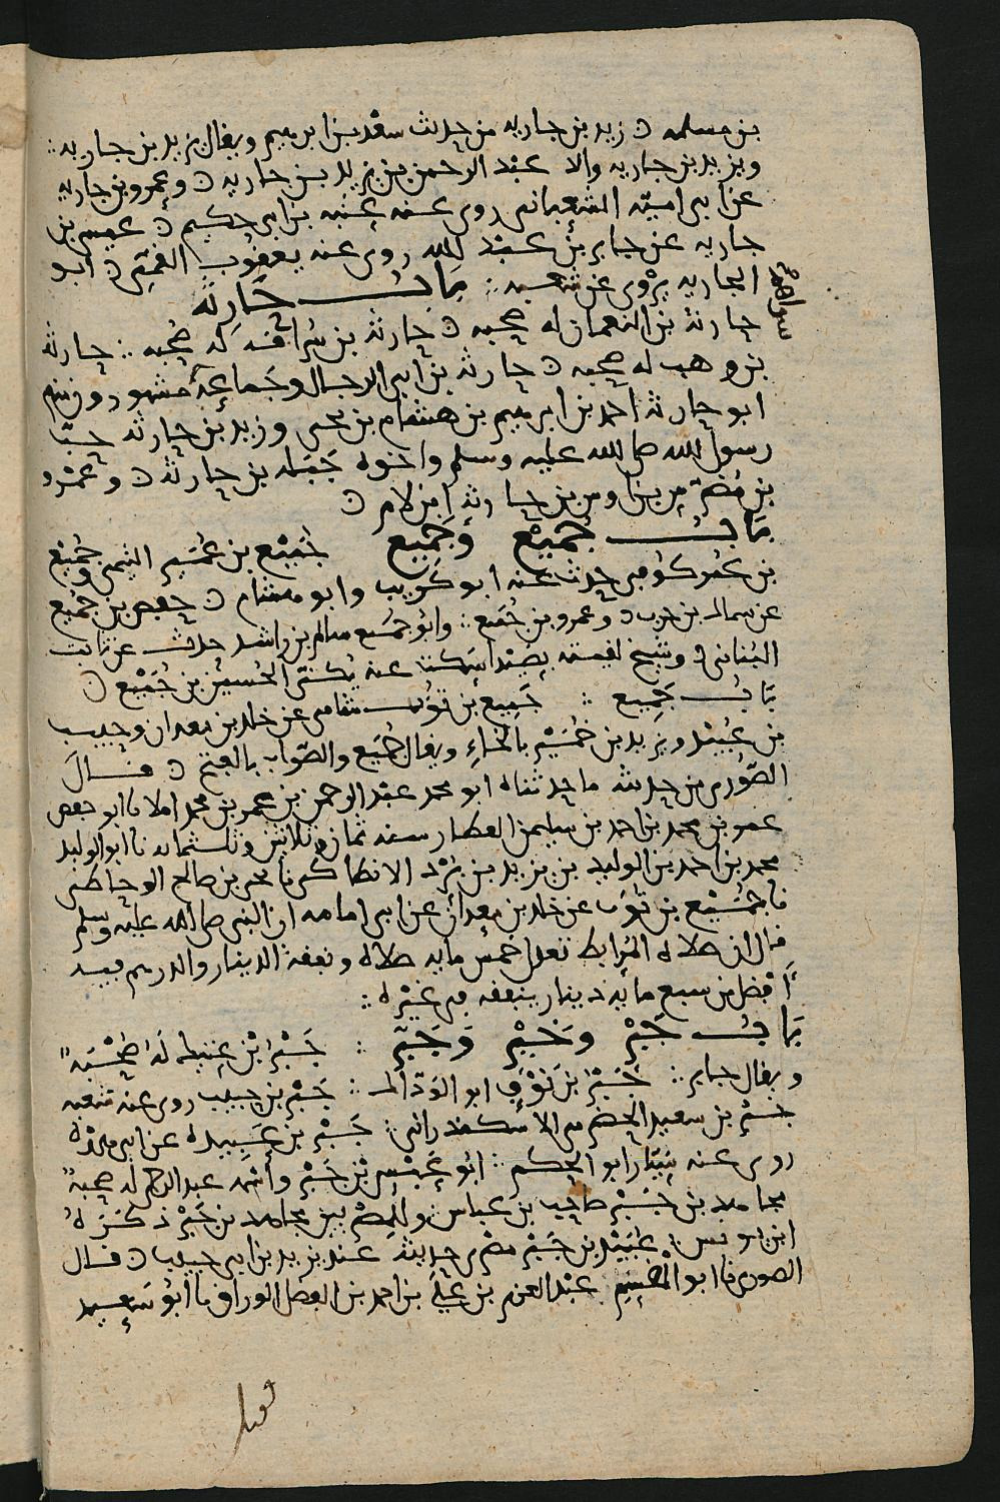 بن مسلمه ٥ زيد بن جاريه من حديث سعد بن ابرهيم ويقال يزيد بن جاريه ::
ويزيد بن جاريه والا عبد الرحمن بن يزيد بن جاريه ٥ وعمرو بن جاريه
عن ابي اميّه الشعباني روى عنه عتبه بن ابي حكيم ٥ عيسى بن
جاريه عن جابر بن عبد الله روى عنه يعقوب القمّي ٥ ابو
الجاريه يروي عن شعبه :: بَاب حَارِثَه
حارثه بن النعمان له صحبه ٥ حارثه بن سُراقه له صُحبه :: حارثه
بن وهب له صحبه ٥ حارثه بن ابي الرجال وجَماعة مشهورون منهم
ابو حارثه احمد بن ابرهيم بن هشام بن يحيى وزيد بن حارثه حِبّ
رسول الله صلى الله عليه وسلم واخوه جَبَله بن حارثه ٥ وعَمْرو
بن مُضَرّس بن اوس بن حارثه ابن لام ٥
بَابُ جُمَيْع وَجَمِيع جُمَيْع بن عُمَير التيمي وجُمَيْع
بن عُمَر كوفي حدث عنه ابو كريب وابو هشام ٥ حفص بن جُمَيع
عن سماك بن حرب ٥ وعمرو بن جُمَيع :: وابو جُمَيع سالم بن راشد حدث عن ثابت
البُناني ٥ وشيخ لقيته بصَيْدا كتبنا عنه يُكنّى الحُسين بن جُمَيْع ٥
بَابُ جَمِيع :: جَمِيع بن ثَوْب شامي عن خلد بن معدان وحبيب
بن عُبَيْد ويزيد بن خُمَيْر بالخاءِ ويقال جُمَيع والصّواب بالفتح ٥ قال
الصّوري من حديثه ما حدثناه ابو محمد عبد الرحمن بن عمر بن محمد املا نا ابو حفص
عمر بن محمد بن احمد بن سليمن العطار سنه ثمان وثلاثين وثلثمائه نا ابو الوليد
محمد بن احمد بن الوليد بن يزيد بن بُرْد الانطاكي نا يحيى بن صالح الوحاظي
نا جُمَيْع بن ثَوْب عن خلد بن معدان عن ابي امامه ان النبي صلى الله عليه وسلم
قال ان صلاه المُرابط تعدل خمس مايه صلاه ونفقه الدينار والدرهم فيه
افضل من سبع مايه دينار ينفقه في غَيْره ::
بَابُ جَبْر وخَيْر وَجَبّر :: جَبْر بْن عتيك لَهُ صُحْبَة
ويقال جابر :: جَبْر بن نَوْف ابو الوَدّاك :: جَبْر بن حبيب روى عنه شعبه
جَبْر بن سعيد الحضرمي الاسكندراني :: جَبْر بن عَبِيده عن ابي هريره
روى عنه سَيّار ابو الحكم :: ابو عَبْس بْن جَبْر واسْمه عبد الرحمن له صحبة
مجاهد بن جَبْر صاحب بن عباس وللمصْريين مجاهد بن جَبْر ذكرَهُ
ابن يونس :: عُبَيْد بن جَبْر مصْري حديثه عند يزيد بن ابي حبيب ٥ قال
الصوري نا ابو القسم عبْد العزيز بن عَلي بن احمد بن الفضل الوراق نا ابو سعيد